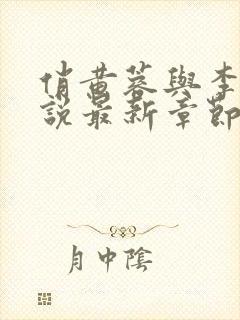 俏黄蓉與李
說最新章節
月中陰